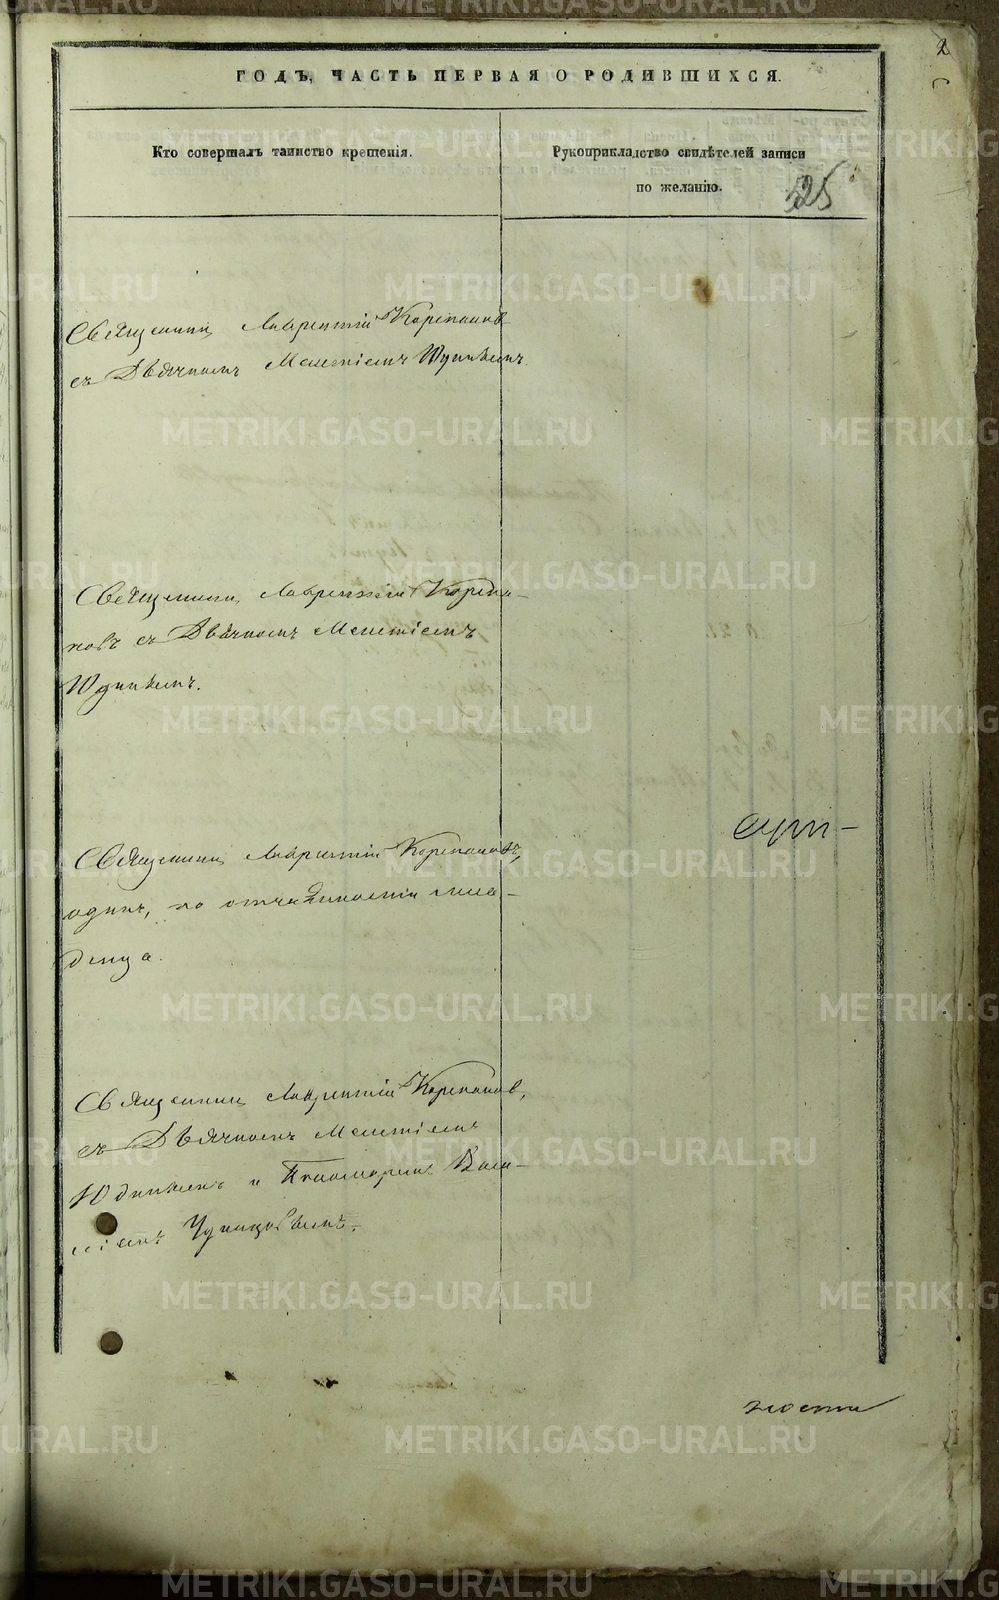 2
ГОДЪ, ЧАСТЬ ПЕРВАЯ О РОДИВШИХСЯ.
Кто совершалъ таинство крещенія.
Рукоприкладство свидѣтелей записи
по желанію.
525
Священникъ Лаврентій Корепановъ
съ Дьячкомъ Мелетіемъ Юдинымъ.
Священникъ Лаврентій Корепа-
новъ съ Дьячкомъ Мелетіемъ
Юдинымъ.
Священникъ Лаврентій Корепановъ,
одинъ, по отчаянности мла-
денца.
Священникъ Лаврентій Корепановъ,
съ Дьячкомъ Мелетіемъ
Юдинымъ и Пономаремъ
METRIKI.GASO-URAL.RU